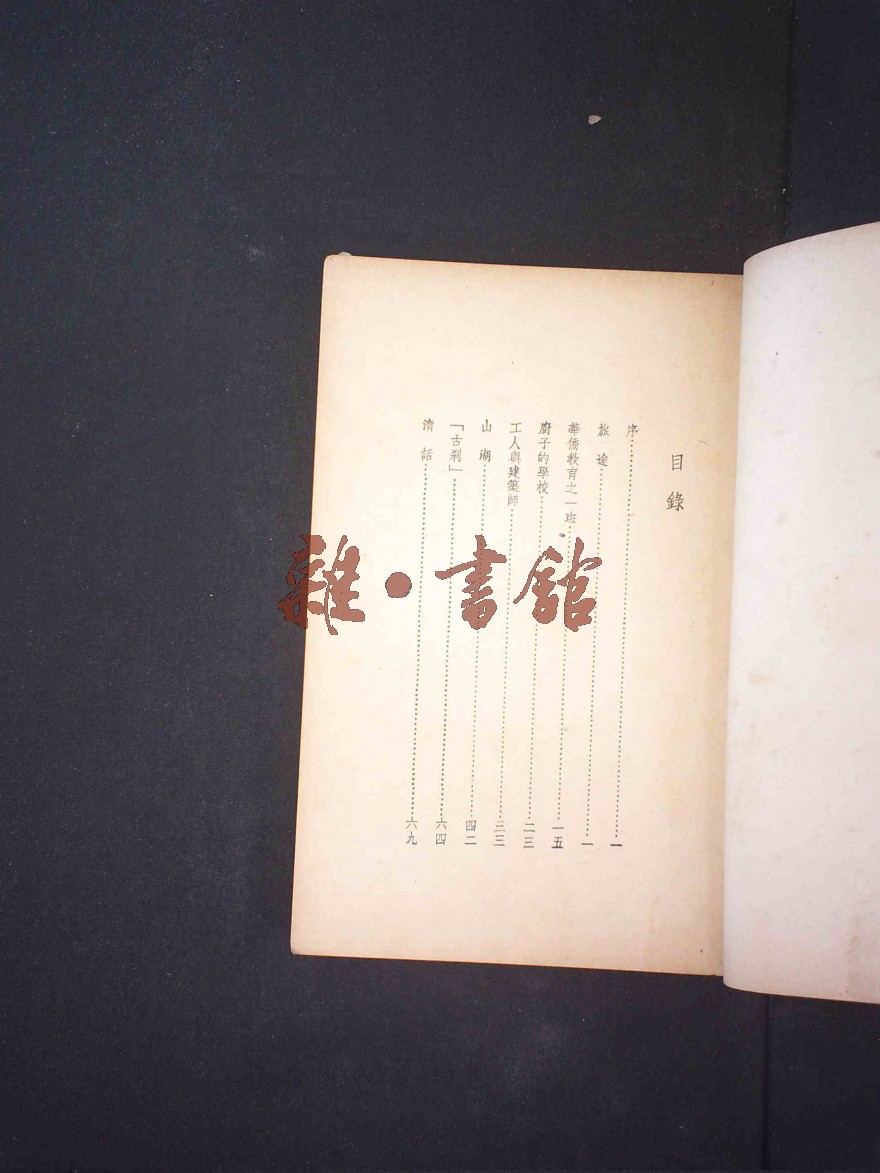 目錄
序……一
旅途……一
華僑教育之一班……一五
廚子的學校……二三
工人與建築師……三三
山湖……四二
「古刹」……六四
清話……六九
雜·書館